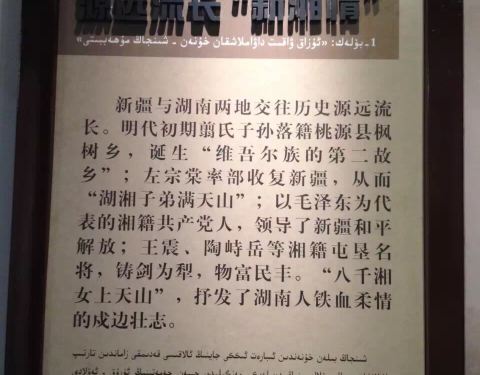 源远流长“新湘情”
1-بۆلەك: «ئۇزاق ۋاقىت داۋاملاشقان خۇنەن - شىنجاڭ مۇھەببىتى»
新疆与湖南两地交往历史源远流
长。明代初期翦氏子孙落籍桃源县枫
树乡，诞生“维吾尔族的第二故
乡”；左宗棠率部收复新疆，从而
“湖湘子弟满天山”；以毛泽东为代
表的湘籍共产党人，领导了新疆和平
解放；王震、陶峙岳等湘籍屯垦名
将，铸剑为犁，物富民丰。“八千湘
女上天山”，抒发了湖南人铁血柔情
的戍边壮志。
شىنجاڭ بىلەن خۇنەندىن ئىبارەت ئىككى جاينىڭ ئالاقىسى قەدىمقى زاماندىن تارتىپ